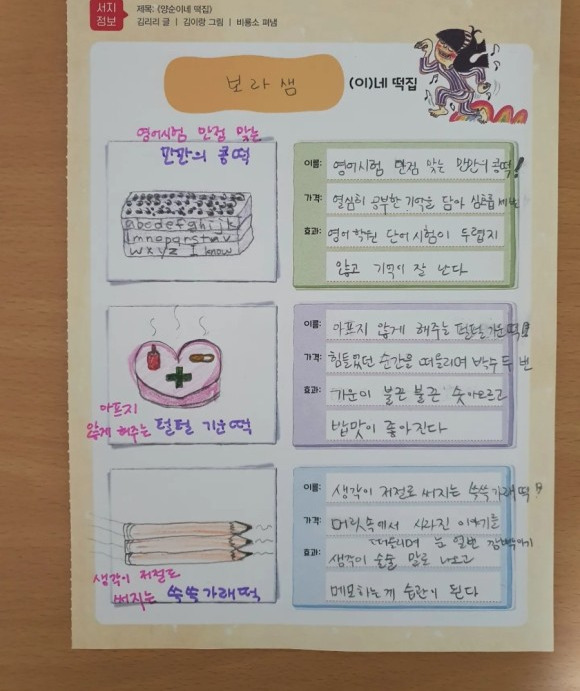 서지
정보
제목: 《양순이네 떡집》
김리리 글 | 김이랑 그림 | 비룡소 펴냄
보라샘
(이)네 떡집
영어시험 만점 맞는
만만의 콩떡
abcdefghijk
lmnopqrstuv
wxyz I know
이름: 영어시험 만점 맞는 만만의 콩떡!
가격: 열심히 공부한 기억을 담아 심호흡
효과: 영어학원 단어시험이 두렵지
않고 기억이 잘 난다
아프지
않게 해주는 펄펄 기운떡
이름: 아프지 않게 해주는 펄펄 기운떡!
가격: 힘들었던 순간을 떠올리며 박수 두 번
효과: 기운이 불끈불끈 솟아오르고
밥맛이 좋아진다
생각이 저절로
써지는 쑥쑥가래떡
이름: 생각이 저절로 써지는 쑥쑥가래떡!
가격: 머릿속에서 사라진 이야기를
떠올리며 눈 열번 깜빡이기
효과: 생각이 술술 말로 나오고
메모하는게 습관이 된다